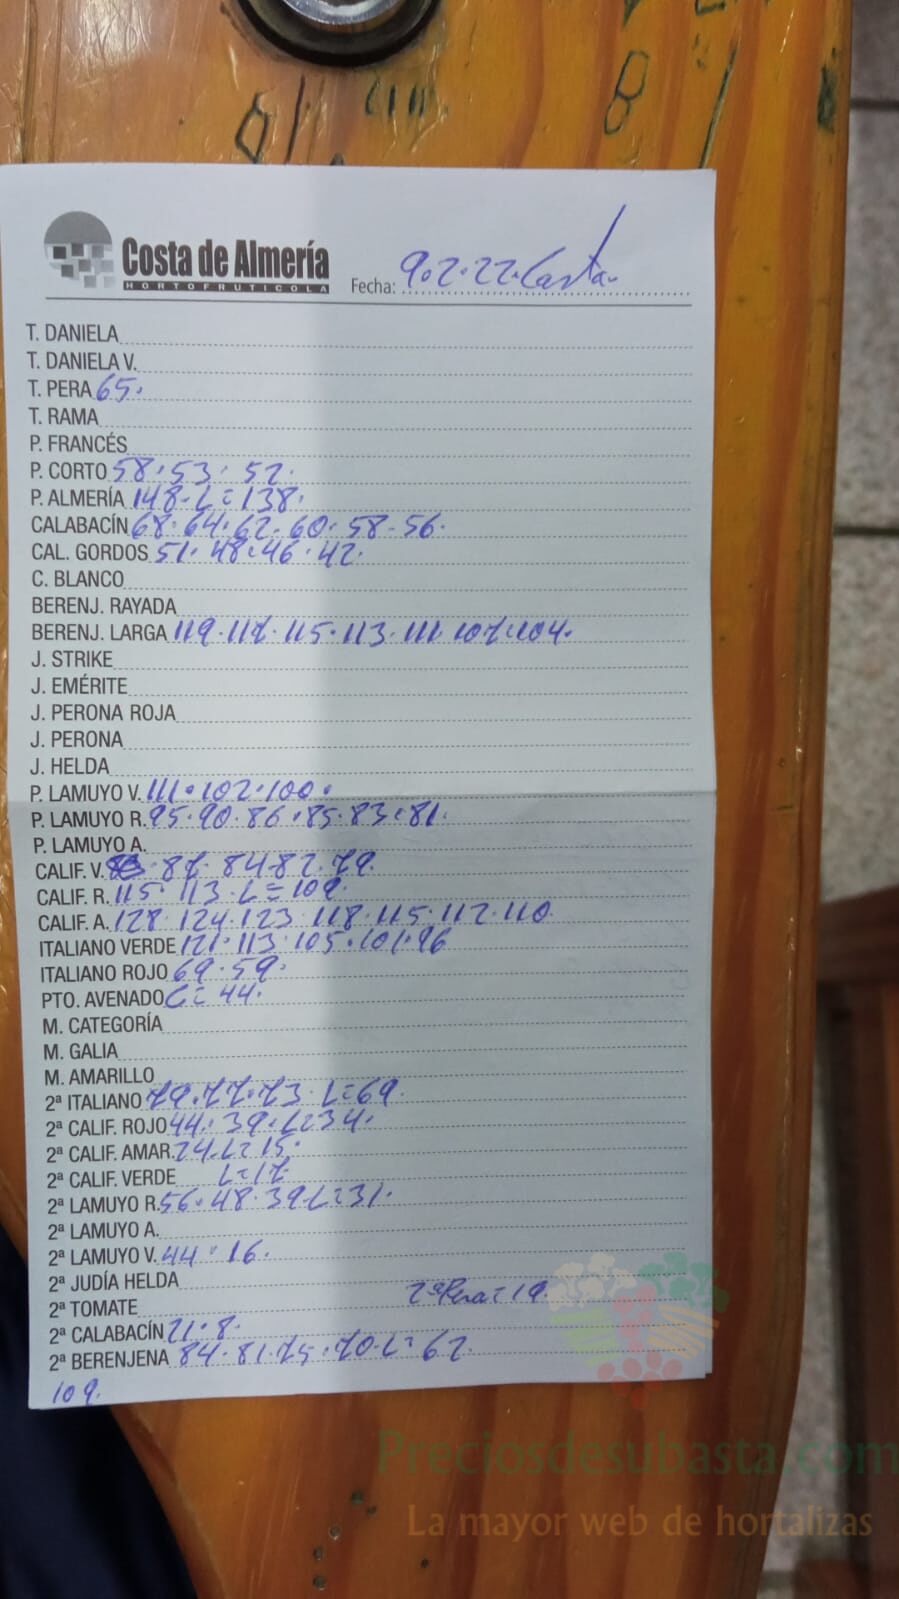 Costa de Almería
HORTOFRUTICOLA
Fecha: 9.2.22. Costa.
T. DANIELA
T. DANIELA V.
T. PERA 65.
T. RAMA
P. FRANCÉS
P. CORTO 58. 53. 52.
P. ALMERÍA 148-L=138.
CALABACÍN 68. 64. 62. 60. 58-56.
CAL. GORDOS 51. 48.46.42.
C. BLANCO
BERENJ. RAYADA
BERENJ. LARGA 119.117.115.113.111.107.104.
J. STRIKE
J. EMÉRITE
J. PERONA ROJA
J. PERONA
J. HELDA
P. LAMUYO V. 111.102.100.
P. LAMUYO R. 95.90.86.85.83.81.
P. LAMUYO A.
CALIF. V. 87. 84-82.79.
CALIF. R. 115. 113-L=109.
CALIF. A. 128. 124.123. 118.115.112.110.
ITALIANO VERDE 121.113.105.101.96
ITALIANO ROJO 69.59.
PTO. AVENADO L=44.
M. CATEGORÍA
M. GALIA
M. AMARILLO
2ª ITALIANO 79.77.73-L=69.
2ª CALIF. ROJO 44. 39.L=34.
2ª CALIF. AMAR. 24.L=15.
2ª CALIF. VERDE L=17
2ª LAMUYO R. 56.48.39-L=31.
2ª LAMUYO A.
2ª LAMUYO V. 44.16.
2ª JUDÍA HELDA
2ª TOMATE 2ª Pera=19.
2ª CALABACÍN 21.8.
2ª BERENJENA 84.81.75.70-L=62.
109.
Preciosdesubasta.com
La mayor web de hortalizas